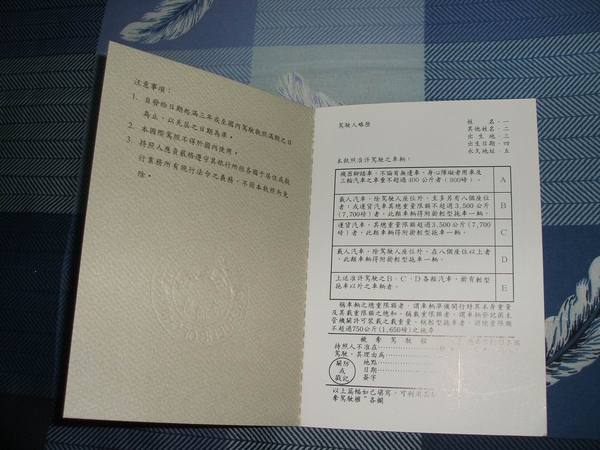 注意事項：
1. 自發給日期起滿三年或至國內駕駛執照滿期之日
為止，以先屆之日期為準。
2. 本國際駕照不得於國內使用。
3. 持照人應負嚴格遵守其旅行所經各國于居住或執
行業務所有現行法令之義務，不因本執照而免
除。
駕駛人略歷
姓名．一
其他姓名．二
出生地．三
出生日期．四
永駕地址．五
本執照准許駕駛之車輛：
機器腳踏車，不論有無邊車，身心障礙者用車及
三輪汽車之車重不超過400公斤者（900磅）。
A
載人汽車，除駕駛人座位外，至多另有八個座位
者；或運貨汽車其總重量限額不超過3,500公斤
（7,700磅）者，此類車輛得附掛輕型拖車一輛。
B
運貨汽車，其總重量限額超過3,500公斤（7,700
磅）者，此類車輛得附掛輕型拖車一輛。
C
載人汽車，除駕駛人座位外，在八個座位以上者
，此類車輛得附掛輕型拖車一輛。
D
上述准許駕駛之B、C、D各類汽車，餘有輕型
拖車以外之車輛者。
E
稱車輛之總重量限額者，謂車輛準備開行時其本身重量
及其載重限額之總和。稱載重限額者，謂車輛登記國主
管機關許可裝載之載重量。稱輕型拖車者，謂總重限額
不超過750公斤(1,650磅)之拖車
被奪駕駛權
持照人不准在
駕駛，其理由為
關防
或
戳記
地點
日期
簽字
以上篇幅如已填寫，可利用
奪駕駛權"各欄